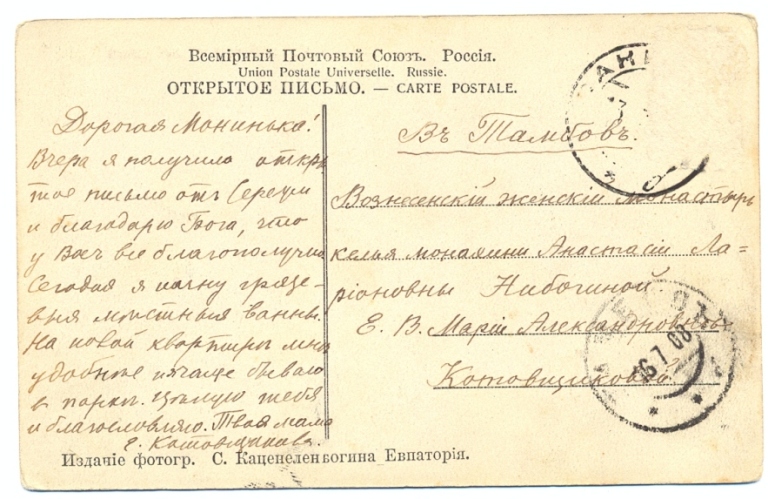 Всемірный Почтовый Союзъ. Россія.
Union Postale Universelle. Russie.
ОТКРЫТОЕ ПИСЬМО. — CARTE POSTALE.
Дорогая Монинька!
Вчера я получила откры
тое письмо отъ Сережи
и благодарю Бога, что
у Васъ все благополучно
Сегодня я начну грязе-
выя мѣстныя ванны.
На новой квартирѣ мнѣ
удобнѣе и чаще бываю
въ паркѣ. Цѣлую тебя
и благословляю. Твоя мама
Е. Котовщикова.
Въ Тамбовъ.
Вознесенскій женскій монастырь
келья монахини Анастасіи Ла=
ріоновны
Е. В. Маріи Александровнѣ
Котовщиковой
6 7 08
Изданіе фотогр. С. Каценеленбогина Евпаторія.